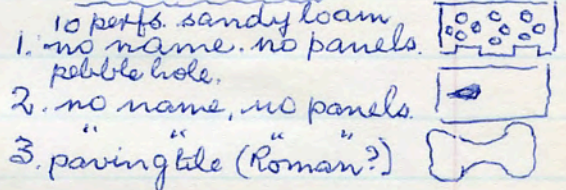 10 perfs. sandy loam
1. no name. no panels.
pebble hole.
2. no name, no panels.
" " " "
3. paving tile (Roman?)